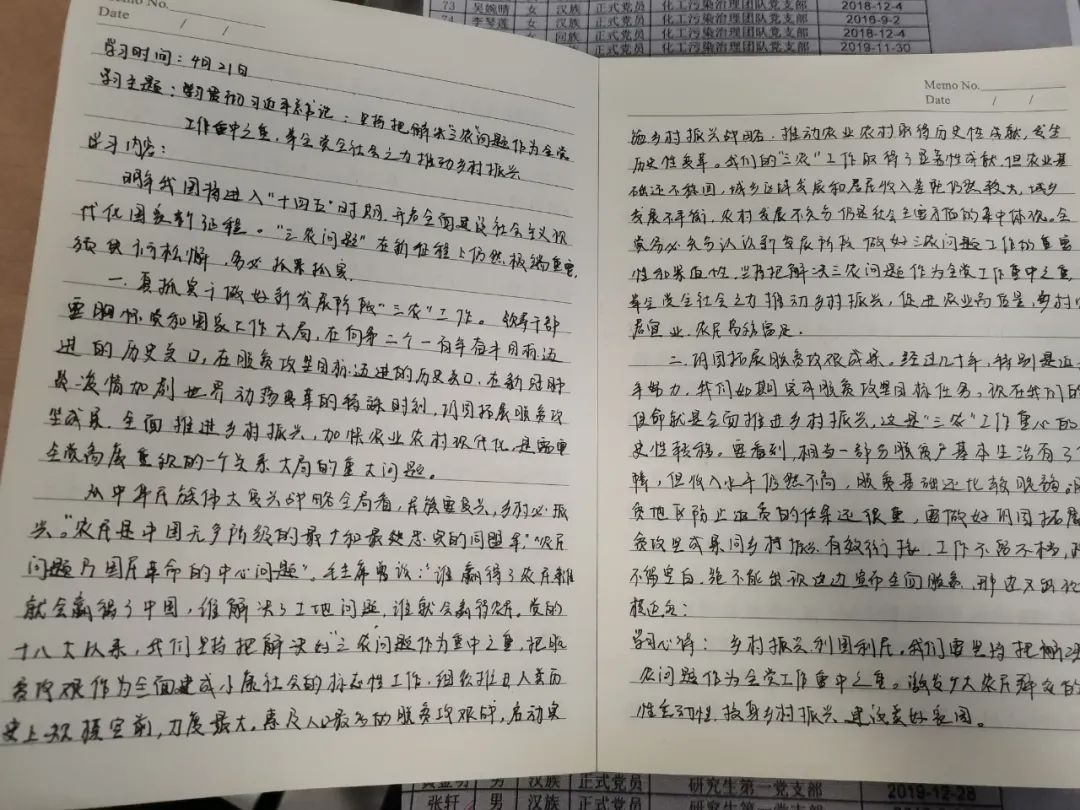 73 吴婉晴 女 汉族 正式党员 化工污染治理团队党支部 2018-12-4
74 李琴莲 女 汉族 正式党员 化工污染治理团队党支部 2018-9-2
女 回族 正式党员 化工污染治理团队党支部 2018-12-4
正式党员 化工污染治理团队党支部 2019-11-30
Memo No.
Date / /
学习时间：4月21日
学习主题：学习贯彻习近平总书记：坚持把解决"三农"问题作为全党
工作重中之重，举全党全社会之力推动乡村振兴
学习内容：
明年我国将进入"十四五"时期，开启全面建设社会主义现
代化国家新征程。"三农问题"在新征程上仍然极端重要，
须臾不可松懈，务必抓紧抓实。
一、真抓实干做好新发展阶段"三农"工作。领导干部
要胸怀党和国家工作大局，在向第二个一百年奋斗目标迈
进的历史关口，在脱贫攻坚目标迈进的历史关口，在新冠肺
炎疫情加剧世界动荡变革的特殊时刻，巩固拓展脱贫攻
坚成果，全面推进乡村振兴，加快农业农村现代化，是需要
全党高度重视的一个关系大局的重大问题。
从中华民族伟大复兴战略全局看，民族要复兴，乡村必振
兴。"农民是中国无产阶级的最大和最忠实的同盟军"，"农民
问题乃国民革命的中心问题"。毛主席曾说："谁赢得了农民谁
就会赢得了中国，谁解决了土地问题，谁就会赢得农民。党的
十八大以来，我们坚持把解决好"三农"问题作为重中之重，把脱
贫攻坚作为全面建成小康社会的标志性工作，组织推进人类历
史上规模空前，力度最大，惠及人口最多的脱贫攻坚战，启动实
Memo No.
Date / /
施乡村振兴战略，推动农业农村取得历史性成就，发生
历史性变革。我们的"三农"工作取得了显著性成就，但农业基
础还不稳固，城乡区域发展和居民收入差距仍然较大，城乡
发展不平衡，农村发展不充分仍是社会主要矛盾的集中体现。全
党务必充分认识新发展阶段做好三农问题工作的重要
性和紧迫性，坚持把解决三农问题作为全党工作重中之重，
举全党全社会之力推动乡村振兴，促进农业高质量，乡村
居宜业，农民富裕富足。
二、巩固拓展脱贫攻坚成果。经过几十年，特别是近
年努力，我们如期完成脱贫攻坚目标任务，现在我们的
使命就是全面推进乡村振兴，这是"三农"工作重心的
史性转移。要看到，相当一部分脱贫户基本生活有了
障，但收入水平仍然不高，脱贫基础还比较脆弱。
贫地区防止返贫的任务还很重，要做好巩固拓展
贫攻坚成果同乡村振兴有效衔接，工作不留不档，
不留空白，绝不能出现这边宣布全面脱贫，那边又出现
模返贫：
学习心得：乡村振兴利国利民，我们要坚持把解决
农问题作为全党工作重中之重。激发广大农民群众的
性主动性，投身乡村振兴，建设美好家园。
男 汉族 正式党员 研究生第一党支部 2019-12-28
张轩 男 汉族 正式党员